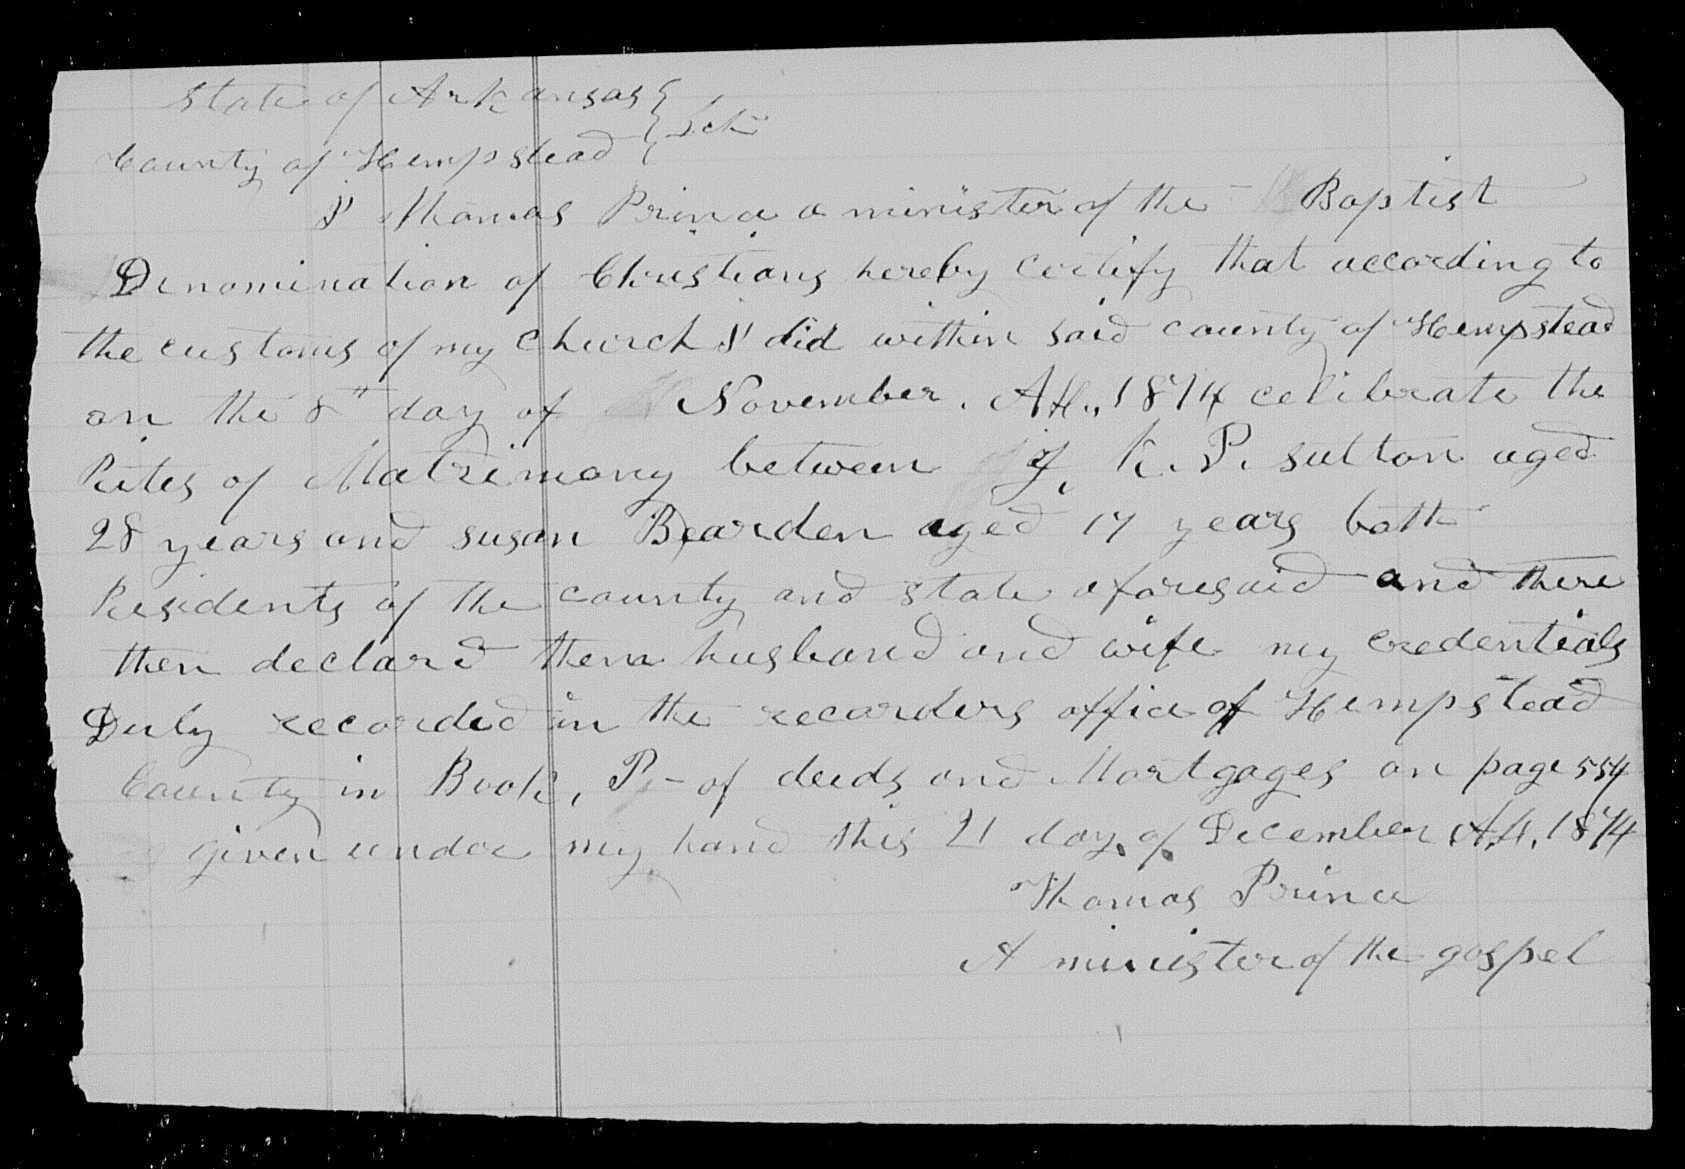 State of Arkansas }
County of Hempstead } Sct
I Thomas Prince a minister of the Baptist
Denomination of Christians hereby certify that according to
the customs of my church I did within said county of Hempstead
on the 8th day of November. AD., 1874 celibrate the
Rites of Matrimony between J. K. P. Sutton aged
28 years and susan Bearden aged 17 years both
Residents of the county and state aforesaid and there
then declard them husband and wife my credentials
Duly recorded in the recorders office of Hempstead
County in Book, P - of deeds and Mortgages on page 554
given under my hand this 21 day of December A.D. 1874
Thomas Prince
A minister of the gospel